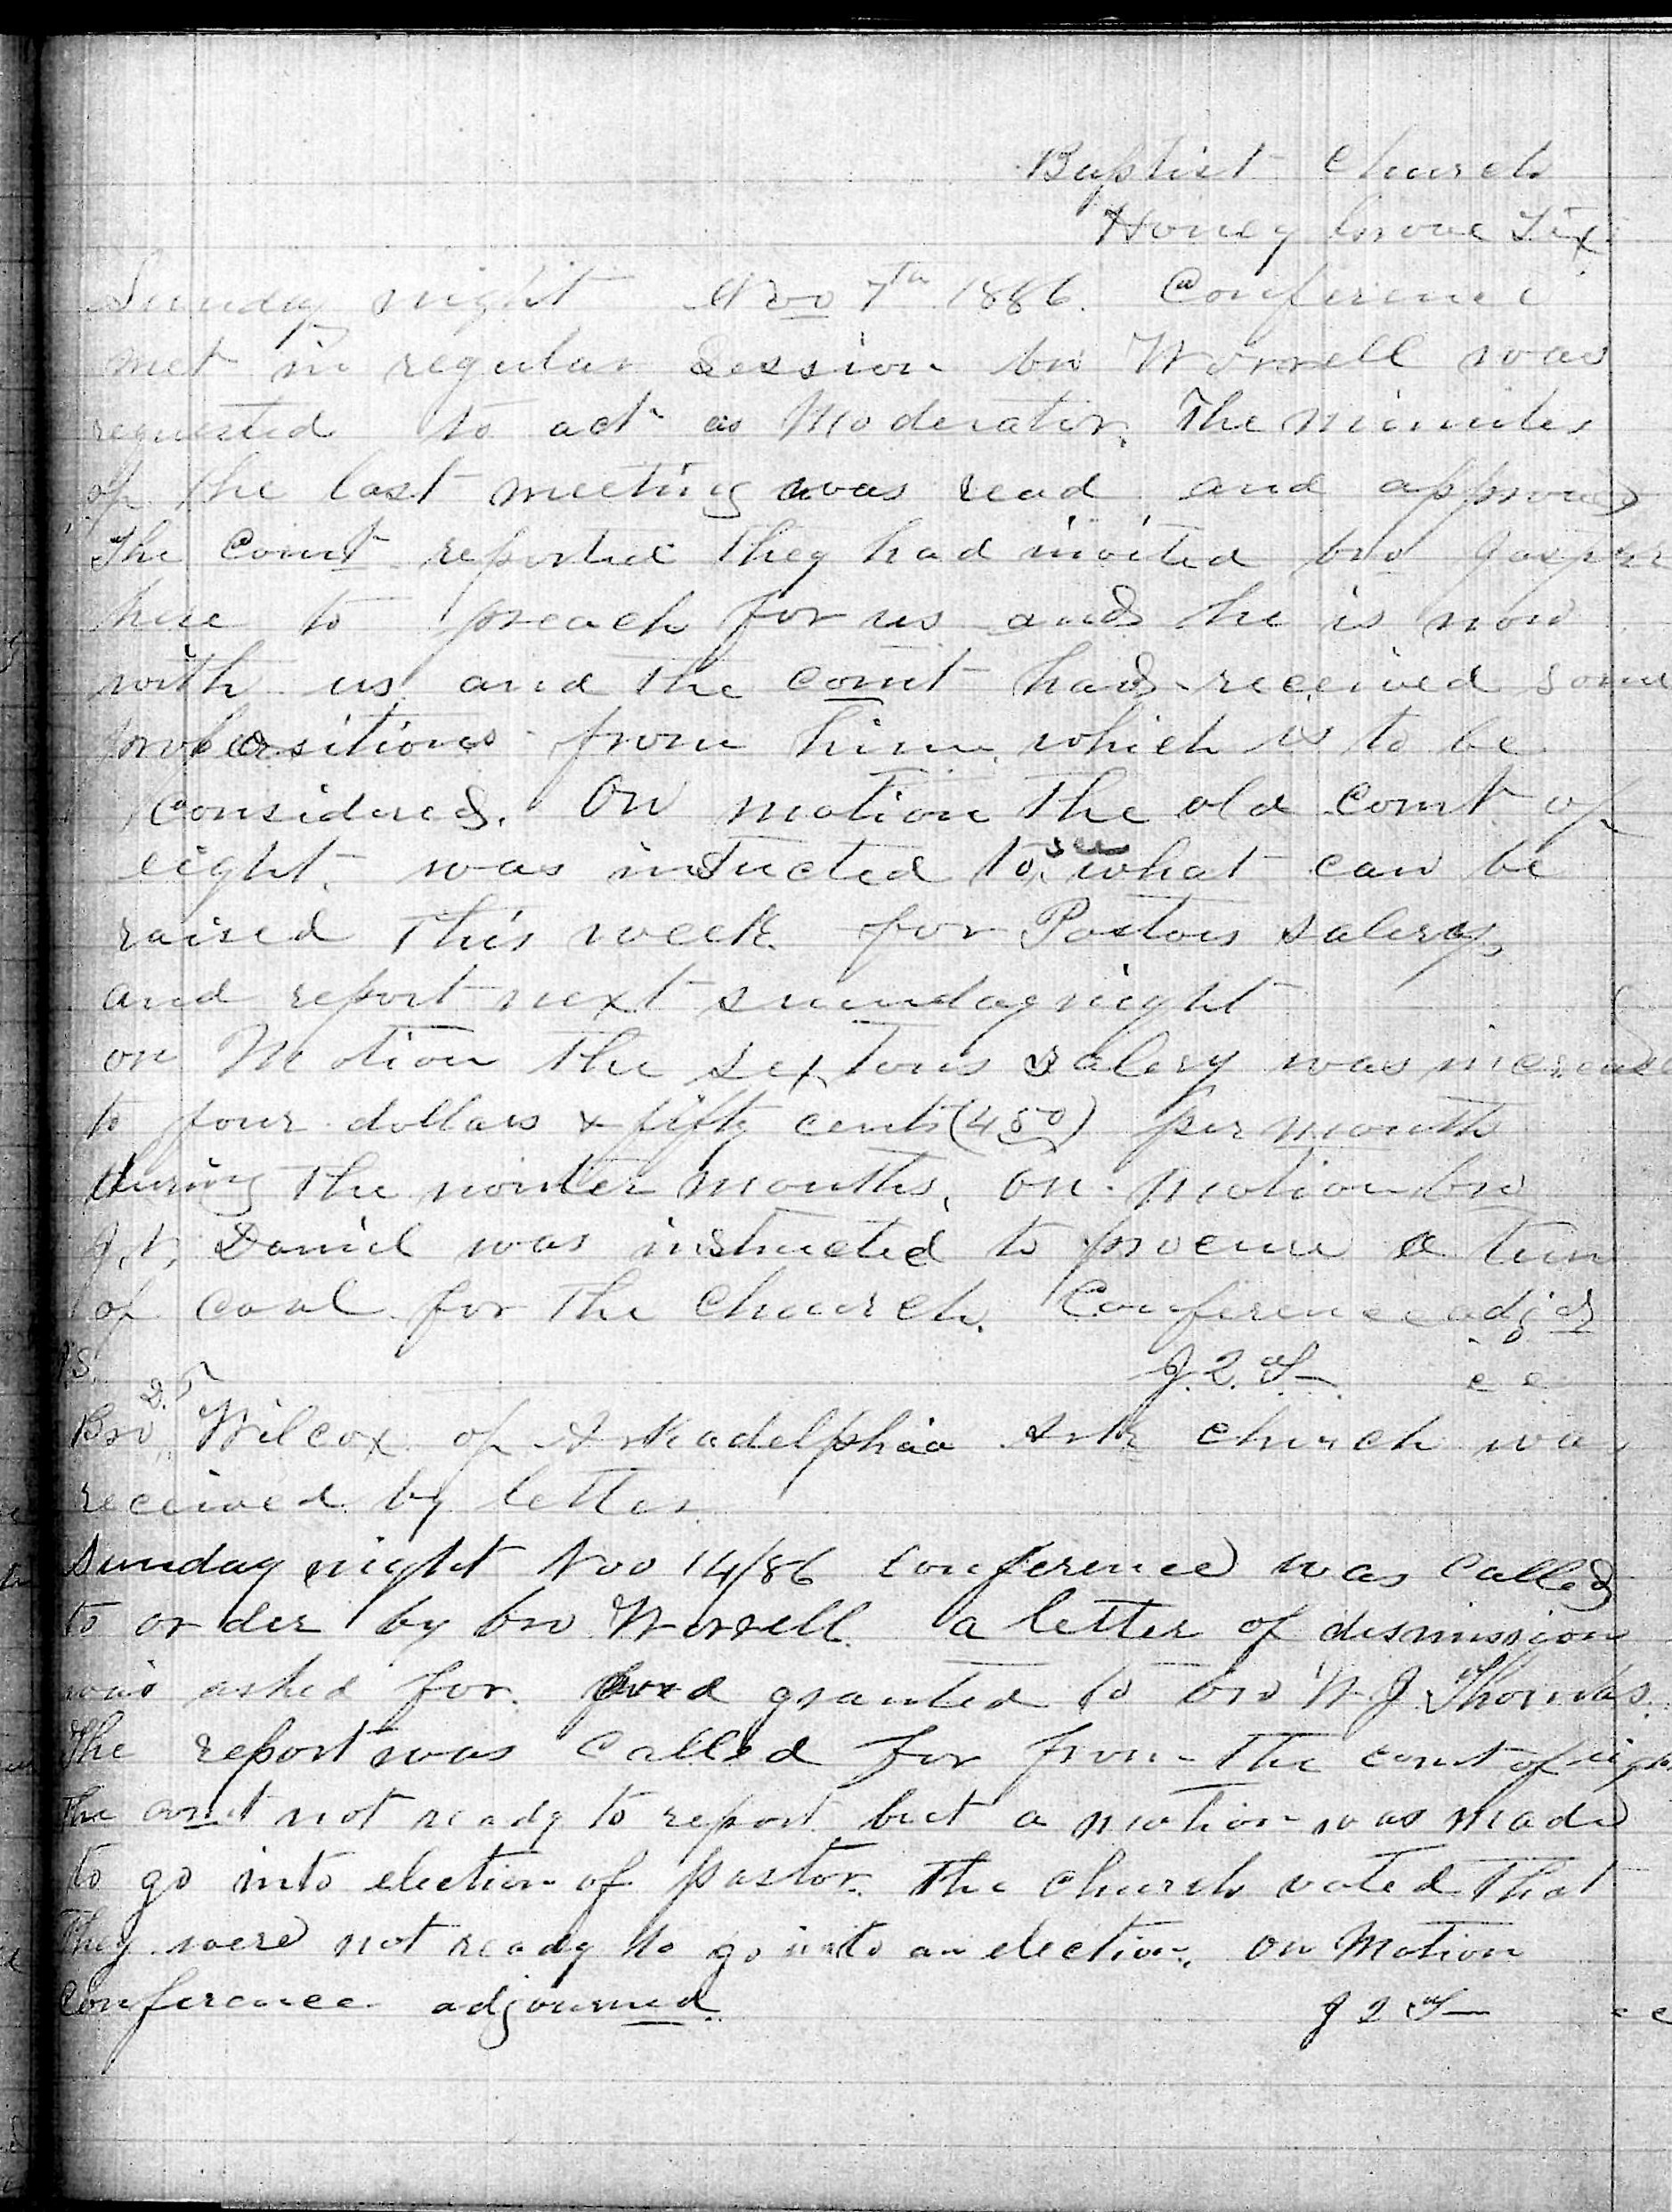 Baptist Church
Honey Grove Tex
Sunday night Nov 7th 1886. Conference
met in regular Session bro Worrell was
requested to act as Moderator. The minutes
of the last meeting was read and approved
The Comt reported they had invited bro Jasper
here to preach for us and he is now
with us and the comt has received some
propositions from him which is to be
considered. On motion the old comt of
eight was instucted to see what can be
raised this week for Pastors salery
and report next sunday night
on Motion the sextons salery was increase
to four dollars & fifty cents (4 50) per month
during the winter months. On motion bro
J. t. Daniel was instructed to procure a tun
of coal for the Church. Conference adjd
J. 2. T. c c
P.S.
Bro D. T. Wilcox of Arkadelphia Ark church was
received by letter
Sunday night Nov 14/86 Conference was called
to order by bro Worrell. a letter of dismission
was asked for and granted to bro W J Thomas.
The report was called for from the comt of eight
The comt not ready to report but a motion was made
to go into election of pastor. The Church voted that
They were not ready to go into an election. On Motion
Conference adjourned.
J 2 T c c